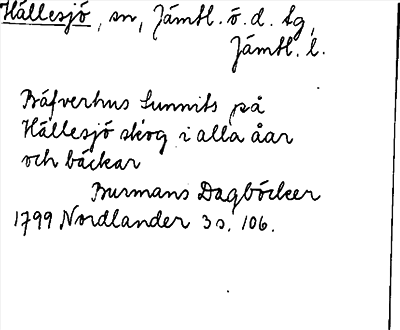 Hällesjö, sn, Jämtl. ö. d. tg,
Jämtl. l.
Bäfverhus funnits på
Hällesjö skog i alla åar
och bäckar
Burmans Dagböcker
1799 Nordlander 3 s. 106.